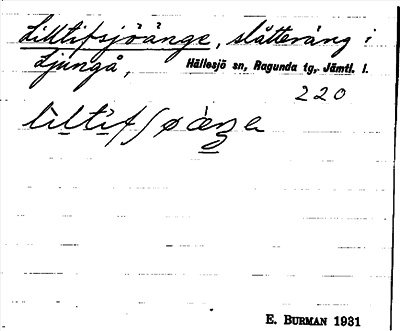 Liktifsjöänge, slåtteräng i
Ljungå, Hällesjö sn, Ragunda tg., Jämtl. l.
220
E. BURMAN 1931